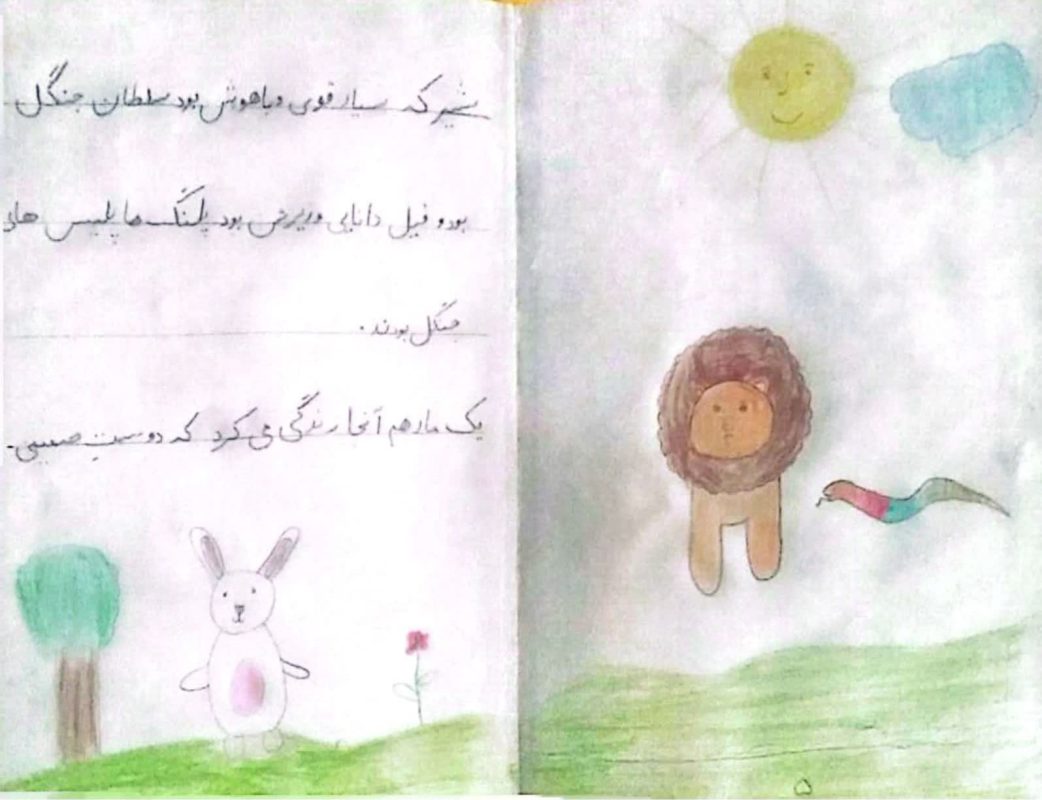 شیر که بسیار قوی و باهوش بود سلطان جنگل
بود و فیل دانایی وزیرش بود پلنگ ها پلیس های
جنگل بودند.
یک مار هم آنجا زندگی می کرد که دوست صمیمی
۵